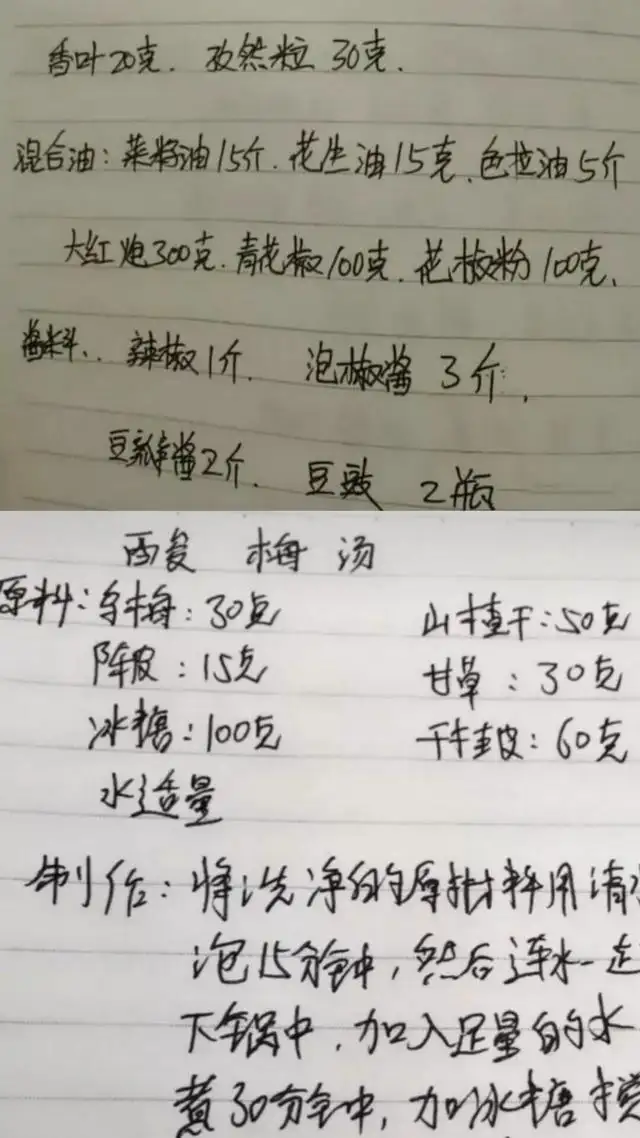 香叶20克. 孜然粒 30克.
混合油: 菜籽油15斤. 花生油15克. 色拉油5斤
大红炮300克. 青花椒100克. 花椒粉100克.
酱料. 辣椒1斤. 泡椒酱 3斤.
豆瓣酱2斤. 豆豉 2瓶
酸梅汤
原料: 乌梅: 30克 山楂干: 50克
陈皮: 15克 甘草: 30克
冰糖: 100克 干桂皮: 60克
水适量
制作: 将洗净的原材料用清水
泡15分钟, 然后连水一起
下锅中, 加入足量的水
煮30分钟, 加冰糖搅